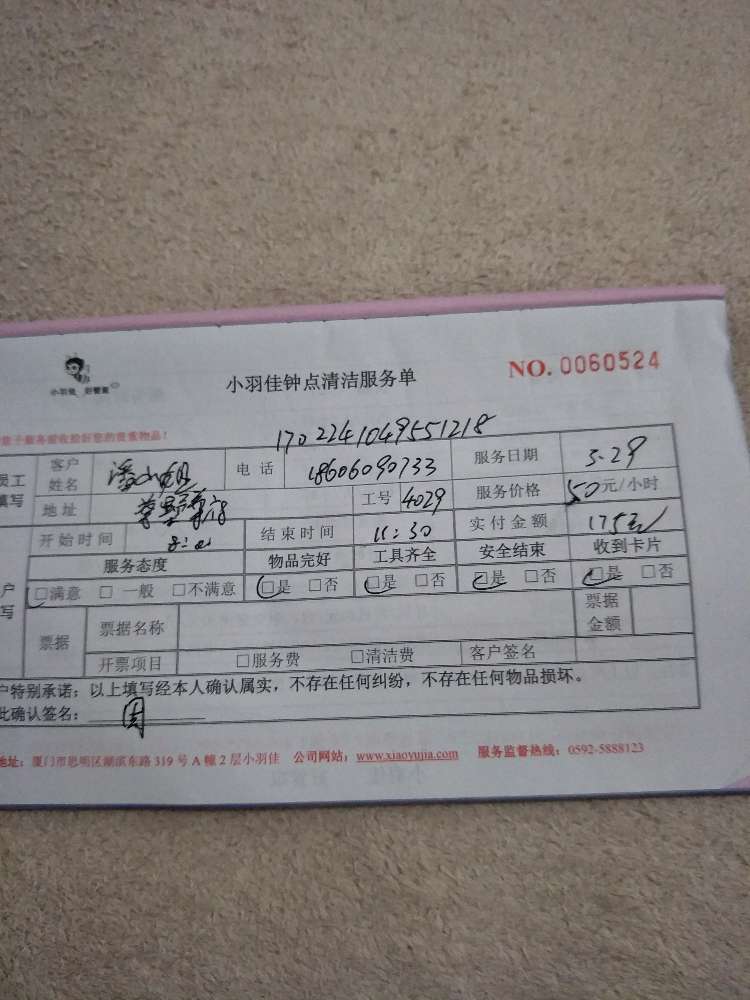 小羽佳 好管家
小羽佳钟点清洁服务单
NO. 0060524
服务前收拾好您的贵重物品!
1702241049551218
员工填写
客户姓名 潘小姐 电话 18606090733 服务日期 5.29
地址 工号 4029 服务价格 50元/小时
开始时间 8:00 结束时间 11:30 实付金额 175元
服务态度 物品完好 工具齐全 安全结束 收到卡片
户写
□满意 □一般 □不满意 □是 □否 □是 □否 □是 □否 □是 □否
票据 票据名称 票据金额
开票项目 □服务费 □清洁费 客户签名
户特别承诺:以上填写经本人确认属实,不存在任何纠纷,不存在任何物品损坏。
此确认签名:周
地址:厦门市思明区湖滨东路319号A幢2层小羽佳 公司网站:www.xiaoyujia.com 服务监督热线:0592-5888123